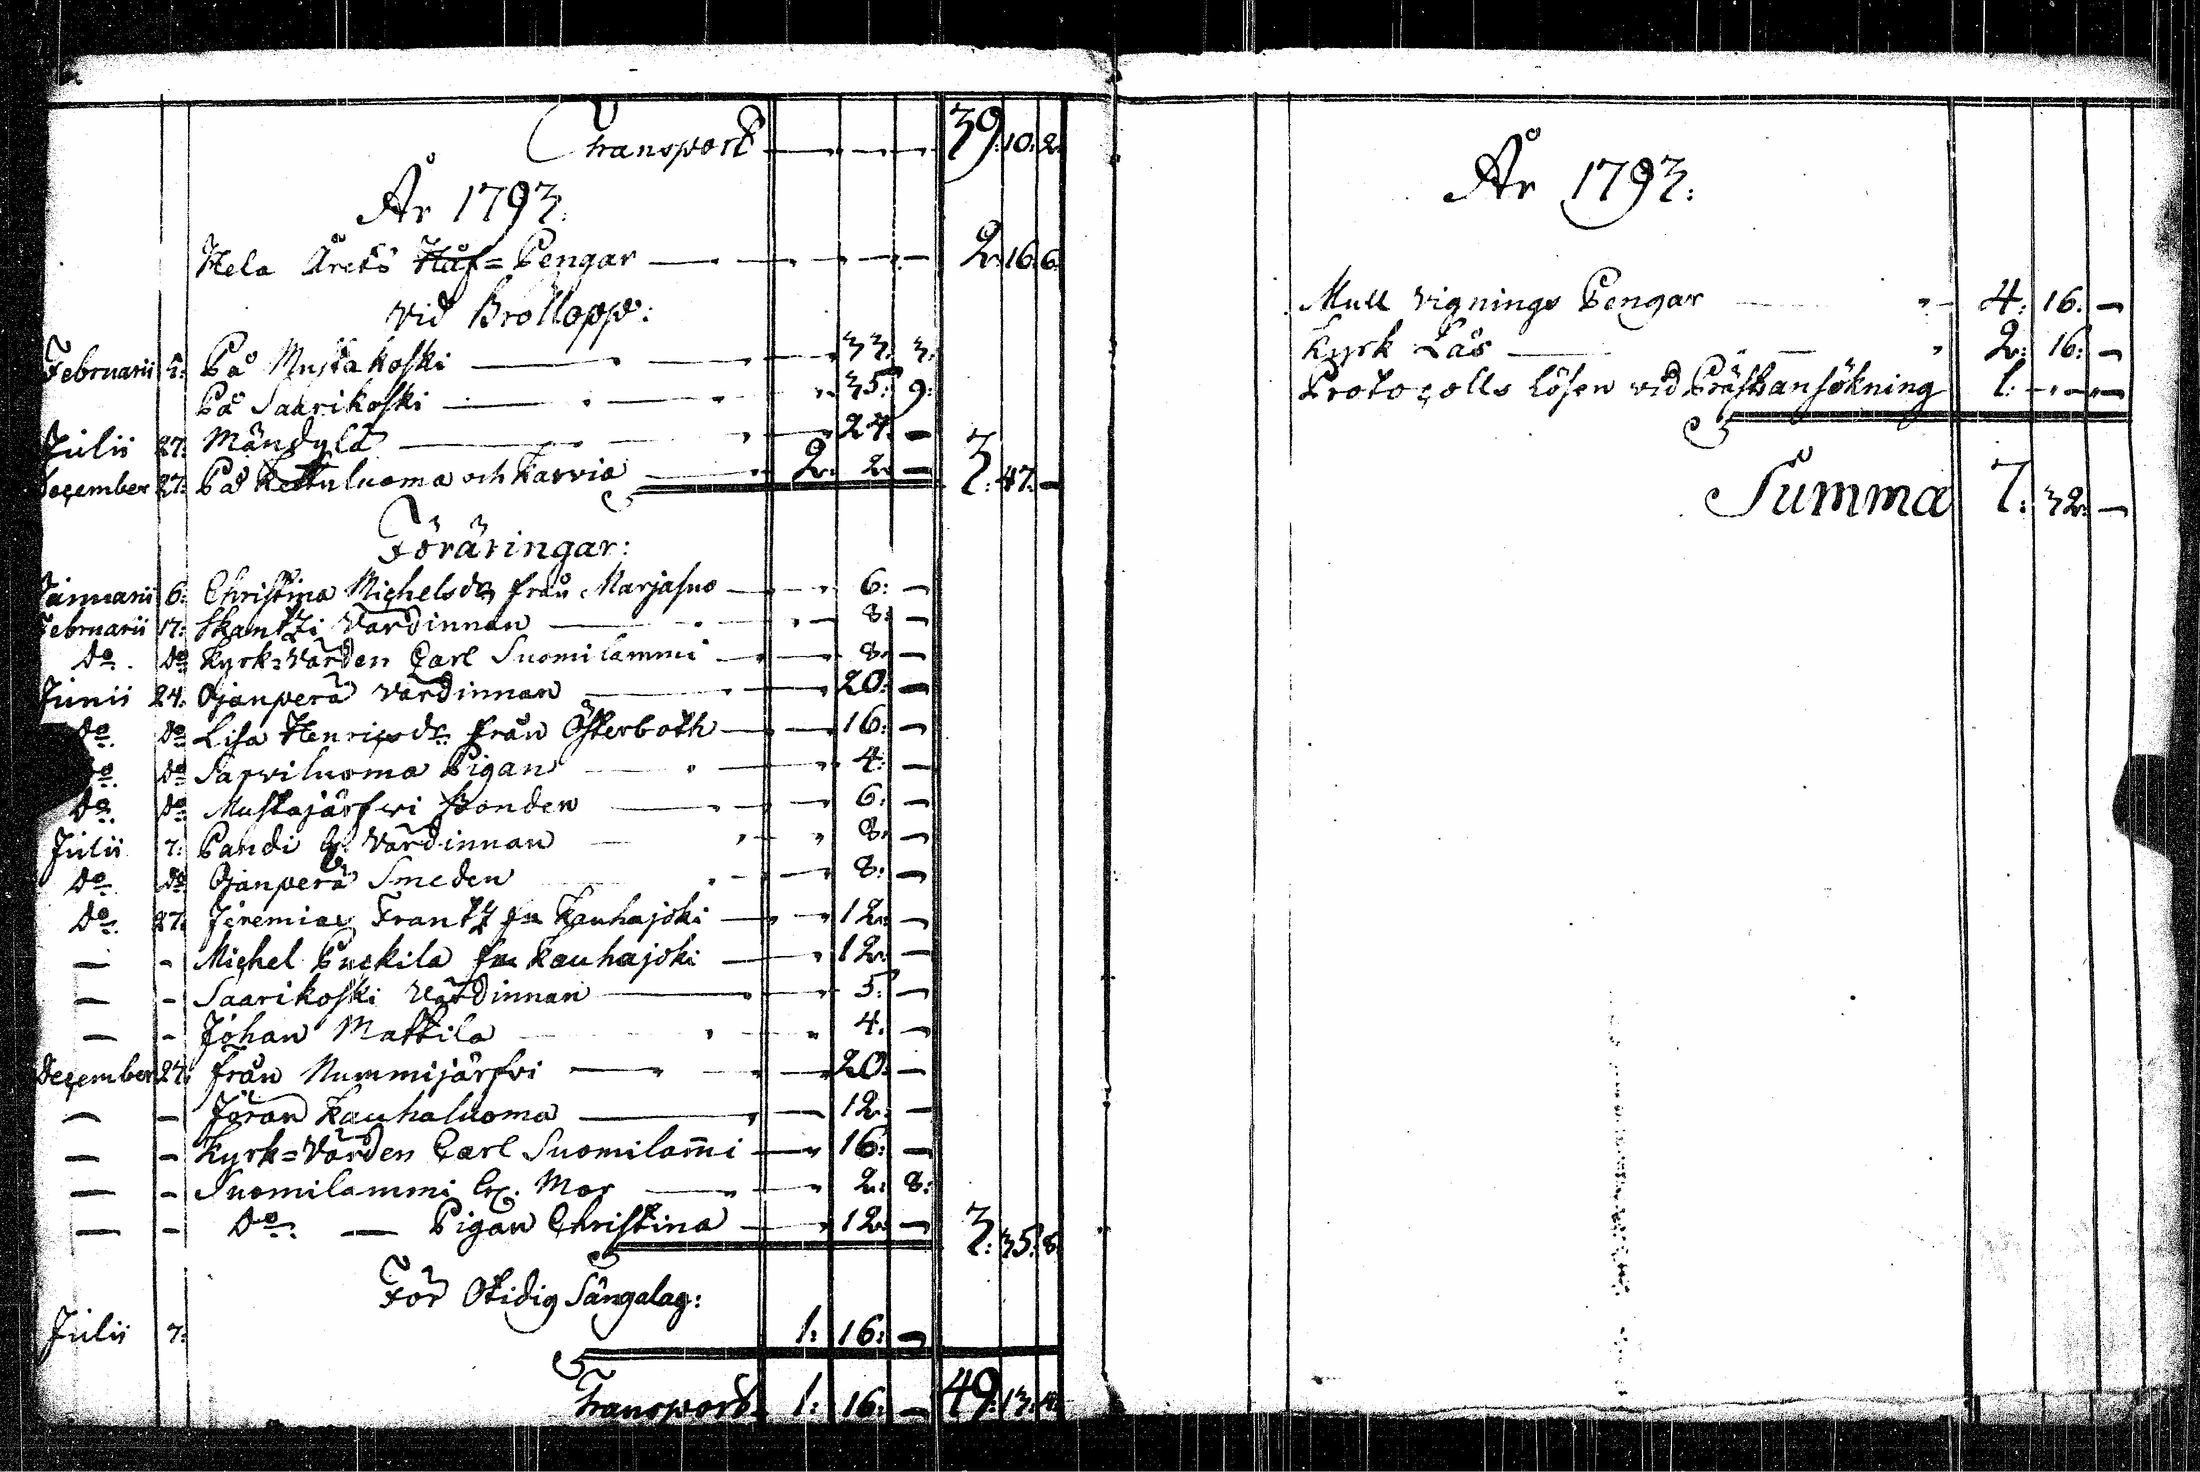 Transport — — — 39: 10: 2.
År 1793.
Hela Årets Håf=Pengar — — — — 2: 16: 6.
vid Bröllopp:
Februarii 3: På Mustakoski — — 33: 3:
På Saarikoski — — 35: 9:
Julii 27: Mändylä — — 24: —
December 27: På Kettuluoma och Karvia — 2: 2: — 3: 47: —
Föräringar:
Januarii 6: Christina Michelsdr från Marjasuo — 6: —
Februarii 17: Skantzi Värdinnan — 8: —
do. do Kyrk=Värden Carl Suomilammi — 8: —
Junii 24: Ojanperä värdinnan — 20: —
do. do Lisa Henricsdr: från Österboth — 16: —
do. do Sarviluoma Pigan — 4: —
do. do Mustajärfwi Bonden — 6: —
Julii 7: Pandi Värdinnan — 8: —
do. do Ojanperä Smeden — 8: —
do. 27: Jeremias Frantz fr Kauhajoki — 12: —
— - Michel Puckila fr Kauhajoki — 12: —
— - Saarikoski Värdinnan — 5: —
— - Johan Mattila — 4: —
December 27: från Nummijärfvi — 20: —
— — Jöran Kauhaluoma — 12: —
— — Kyrk=Värden Carl Suomilam̄i — 16: —
— - Suomilammi Ex. Mor — 2: 8:
— - do: — Pigan Christina — 12: — 3: 35: 8.
För Otidig Sängalag:
Julii 7: 1: 16: —
Transport. 1: 16: — 49: 13: 4.
År 1793:
Mull vignings Pengar — 4: 16: —
Kyrk Lås — 2: 16: —
Protocolls Lösen vid Prästansökning 1: — —
Summa 7: 32: —